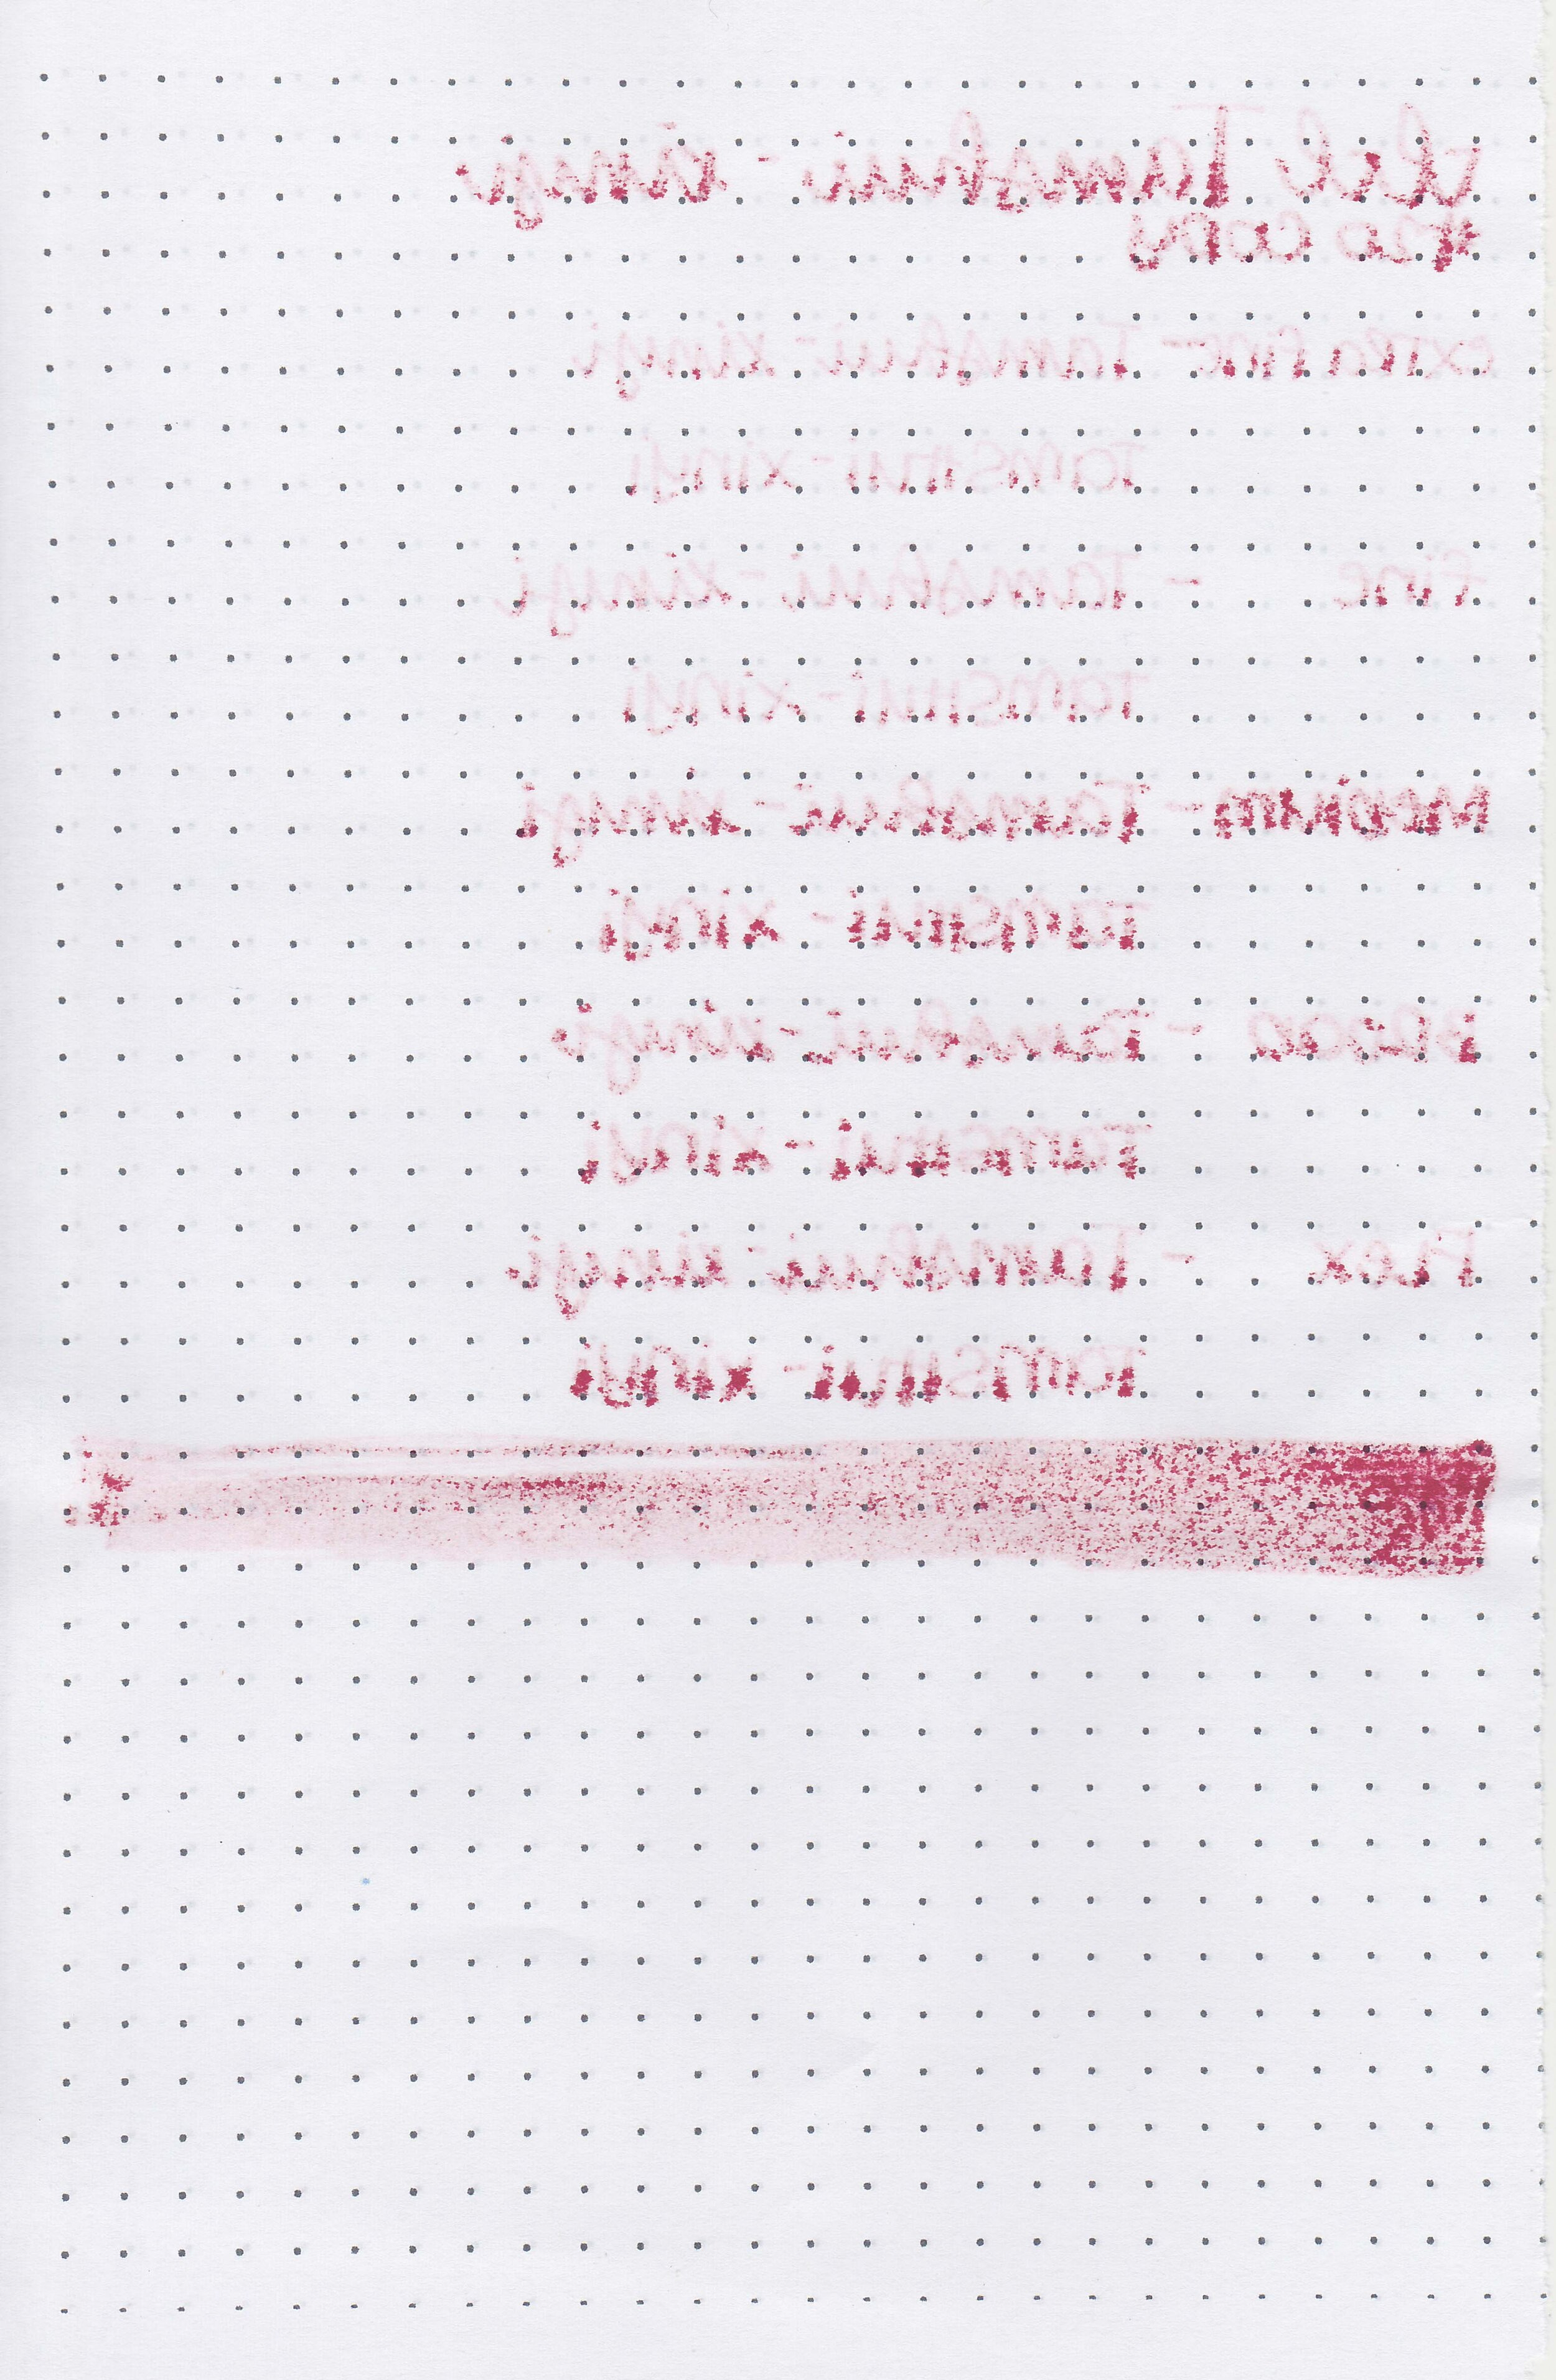 Tamshui-xinyi
Extra fine- Tamshui-xinyi
Tamshui-xinyi
Fine - Tamshui-xinyi
Tamshui-xinyi
Medium- Tamshui-xinyi
Tamshui-xinyi
Broad - Tamshui-xinyi
Tamshui-xinyi
Flex - Tamshui-xinyi
Tamshui-xinyi